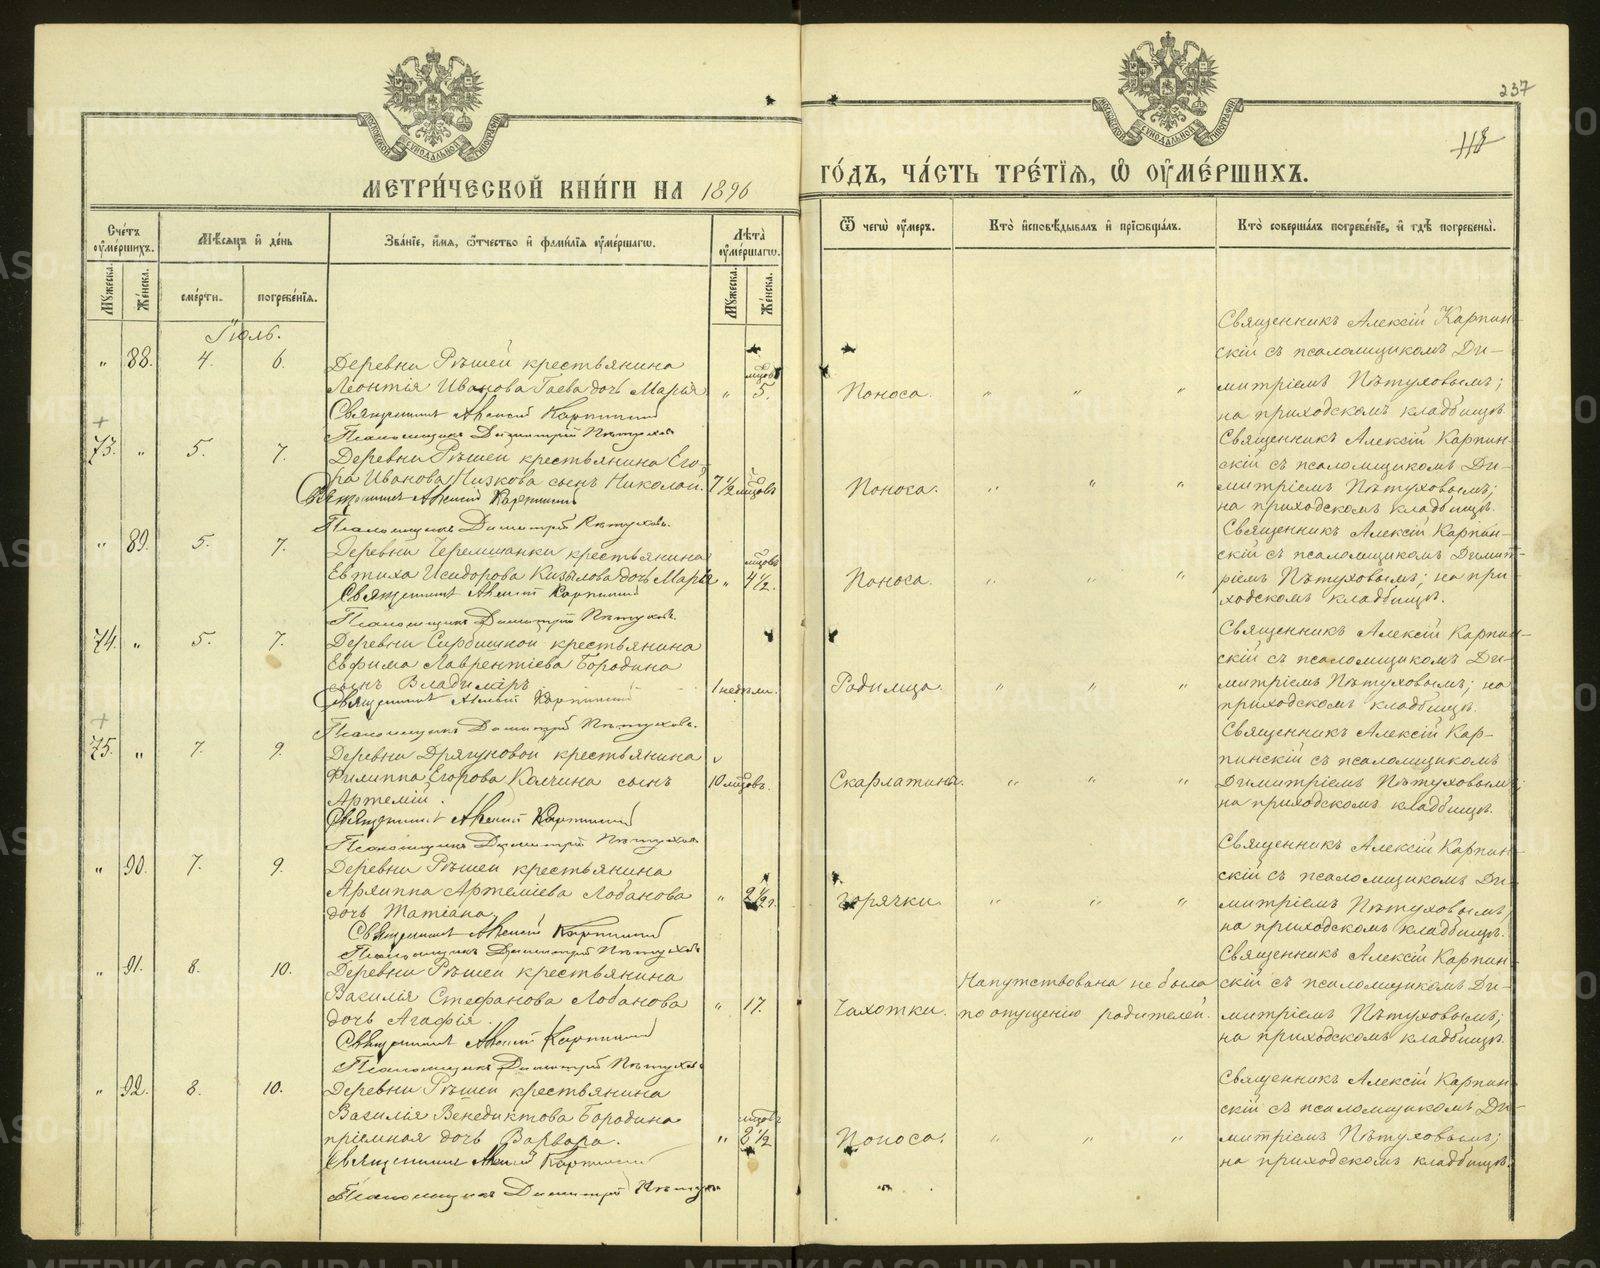 237
118
МЕТРИ́ЧЕСКОЙ КНИ́ГИ НА 1896
ГО́ДЪ, ЧА́СТЬ ТРЕ́ТЇѦ, Ѽ ОУ҆МЕ́РШИХЪ.
Сче́тъ оу҆ме́ршихъ.
Мѣ́сѧцъ и҆ де́нь
Зва́нїе, и҆́мѧ, ѻ҆́тчество и҆ фами́лїѧ оу҆ме́ршагѡ.
Лѣ́та оу҆ме́ршагѡ.
Ѿ чегѡ̀ оу҆́меръ.
Кто̀ и҆сповѣ́дывалъ и҆ прїѡбща́лъ.
Кто̀ соверша́лъ погребе́нїе, и҆ гдѣ̀ погребены̀.
Мꙋ́жеска. Же́нска. сме́рти. погребе́нїѧ. Мꙋ́жеска. Же́нска.
Іюль.
" 88. 4. 6.
Деревни Рѣшей крестьянина
Леонтія Иванова Гаева дочь Марія " мцовъ 5.
Священникъ Алексій Карпинскій
Псаломщикъ Димитрій Пѣтуховъ
Поноса. " " "
Священникъ Алексій Карпин-
скій съ псаломщикомъ Ди-
митріемъ Пѣтуховымъ;
на приходскомъ кладбищѣ.
73. " 5. 7.
Деревни Рѣшей крестьянина Его-
ра Иванова Низкова сынъ Николай. 7 1/2 мцовъ
Священникъ Алексій Карпинскій
Псаломщикъ Димитрій Пѣтуховъ.
Поноса. " " "
Священникъ Алексій Карпин-
скій съ псаломщикомъ Ди-
митріемъ Пѣтуховымъ;
на приходскомъ кладбищѣ.
" 89. 5. 7.
Деревни Черемшанки крестьянина
Евтиха Исидорова Кизылова дочь Марія " мцовъ 4 1/2.
Священникъ Алексій Карпинскій
Псаломщикъ Димитрій Пѣтуховъ.
Поноса. " " "
Священникъ Алексій Карпин-
скій съ псаломщикомъ Димит-
ріемъ Пѣтуховымъ; на при-
ходскомъ кладбищѣ.
74. " 5. 7.
Деревни Сирбишной крестьянина
Евфима Лаврентіева Бородина
сынъ Владиміръ 1 недѣли.
Священникъ Алексій Карпинскій
Псаломщикъ Димитрій Пѣтуховъ.
Родимца. " " "
Священникъ Алексій Карпин-
скій съ псаломщикомъ Ди-
митріемъ Пѣтуховымъ; на
приходскомъ кладбищѣ.
75. " 7. 9.
Деревни Дрягуновой крестьянина
Филиппа Егорова Колчина сынъ 10 мцовъ.
Артемій.
Священникъ Алексій Карпинскій
Псаломщикъ Димитрій Пѣтуховъ.
Скарлатины. " " "
Священникъ Алексій Кар-
пинскій съ псаломщикомъ
Димитріемъ Пѣтуховымъ;
на приходскомъ кладбищѣ.
" 90. 7. 9.
Деревни Рѣшей крестьянина
Архиппа Артеміева Лобанова " 2 1/2 г.
дочь Татіана.
Священникъ Алексій Карпинскій
Псаломщикъ Димитрій Пѣтуховъ
Горячки. " " "
Священникъ Алексій Карпин-
скій съ псаломщикомъ Ди-
митріемъ Пѣтуховымъ;
на приходскомъ кладбищѣ.
" 91. 8. 10.
Деревни Рѣшей крестьянина
Василія Стефанова Лобанова " 17.
дочь Агафія.
Священникъ Алексій Карпинскій
Псаломщикъ Димитрій Пѣтуховъ
Чахотки.
Напутствована не была
по опущенію родителей.
Священникъ Алексій Карпин-
скій съ псаломщикомъ Ди-
митріемъ Пѣтуховымъ;
на приходскомъ кладбищѣ.
" 92. 8. 10.
Деревни Рѣшей крестьянина
Василія Венедиктова Бородина
пріемная дочь Варвара. " мцовъ 2 1/2
Священникъ Алексій Карпинскій
Псаломщикъ Димитрій Пѣтуховъ
Поноса. " " "
Священникъ Алексій Карпин-
скій съ псаломщикомъ Ди-
митріемъ Пѣтуховымъ;
на приходскомъ кладбищѣ.